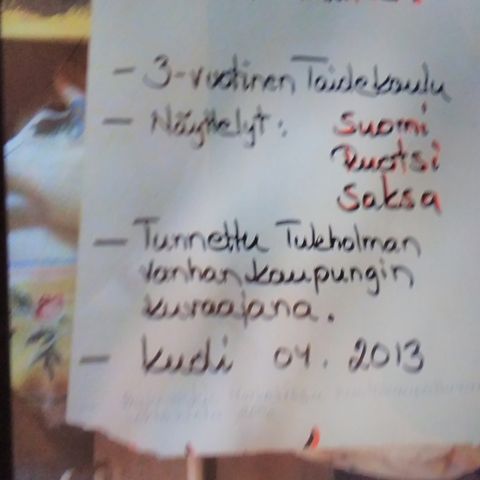 - 3-vuotinen Taidekoulu
- Näyttelyt: Suomi
Ruotsi
Saksa
- Tunnettu Tukholman
vanhankaupungin
kuvaajana.
- kudi 04. 2013